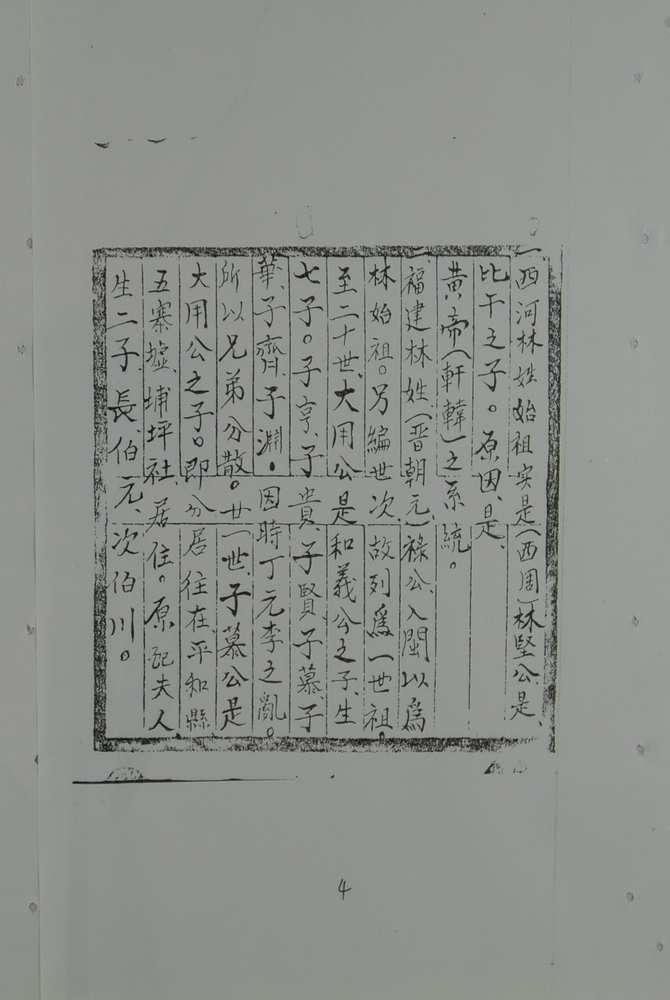 一、西河林姓始祖实是(西周)林堅公是、
比干之子。原因、是、
黃帝(軒轅)之系統。
二、福建林姓(晋朝元)祿公、入閩以爲
林始祖。另編世次、故列爲一世祖。
至二十世、大用公是和義公之子、生
七子。子亨、子貴、子賢、子慕、子
華、子齊、子淵。因時丁元季之亂。
所以兄弟分散。廿一世、子慕公是
大用公之子。即分居住在平和縣
五寨墟、埔坪社、居住。原配夫人
生二子、長、伯元、次伯川。
4